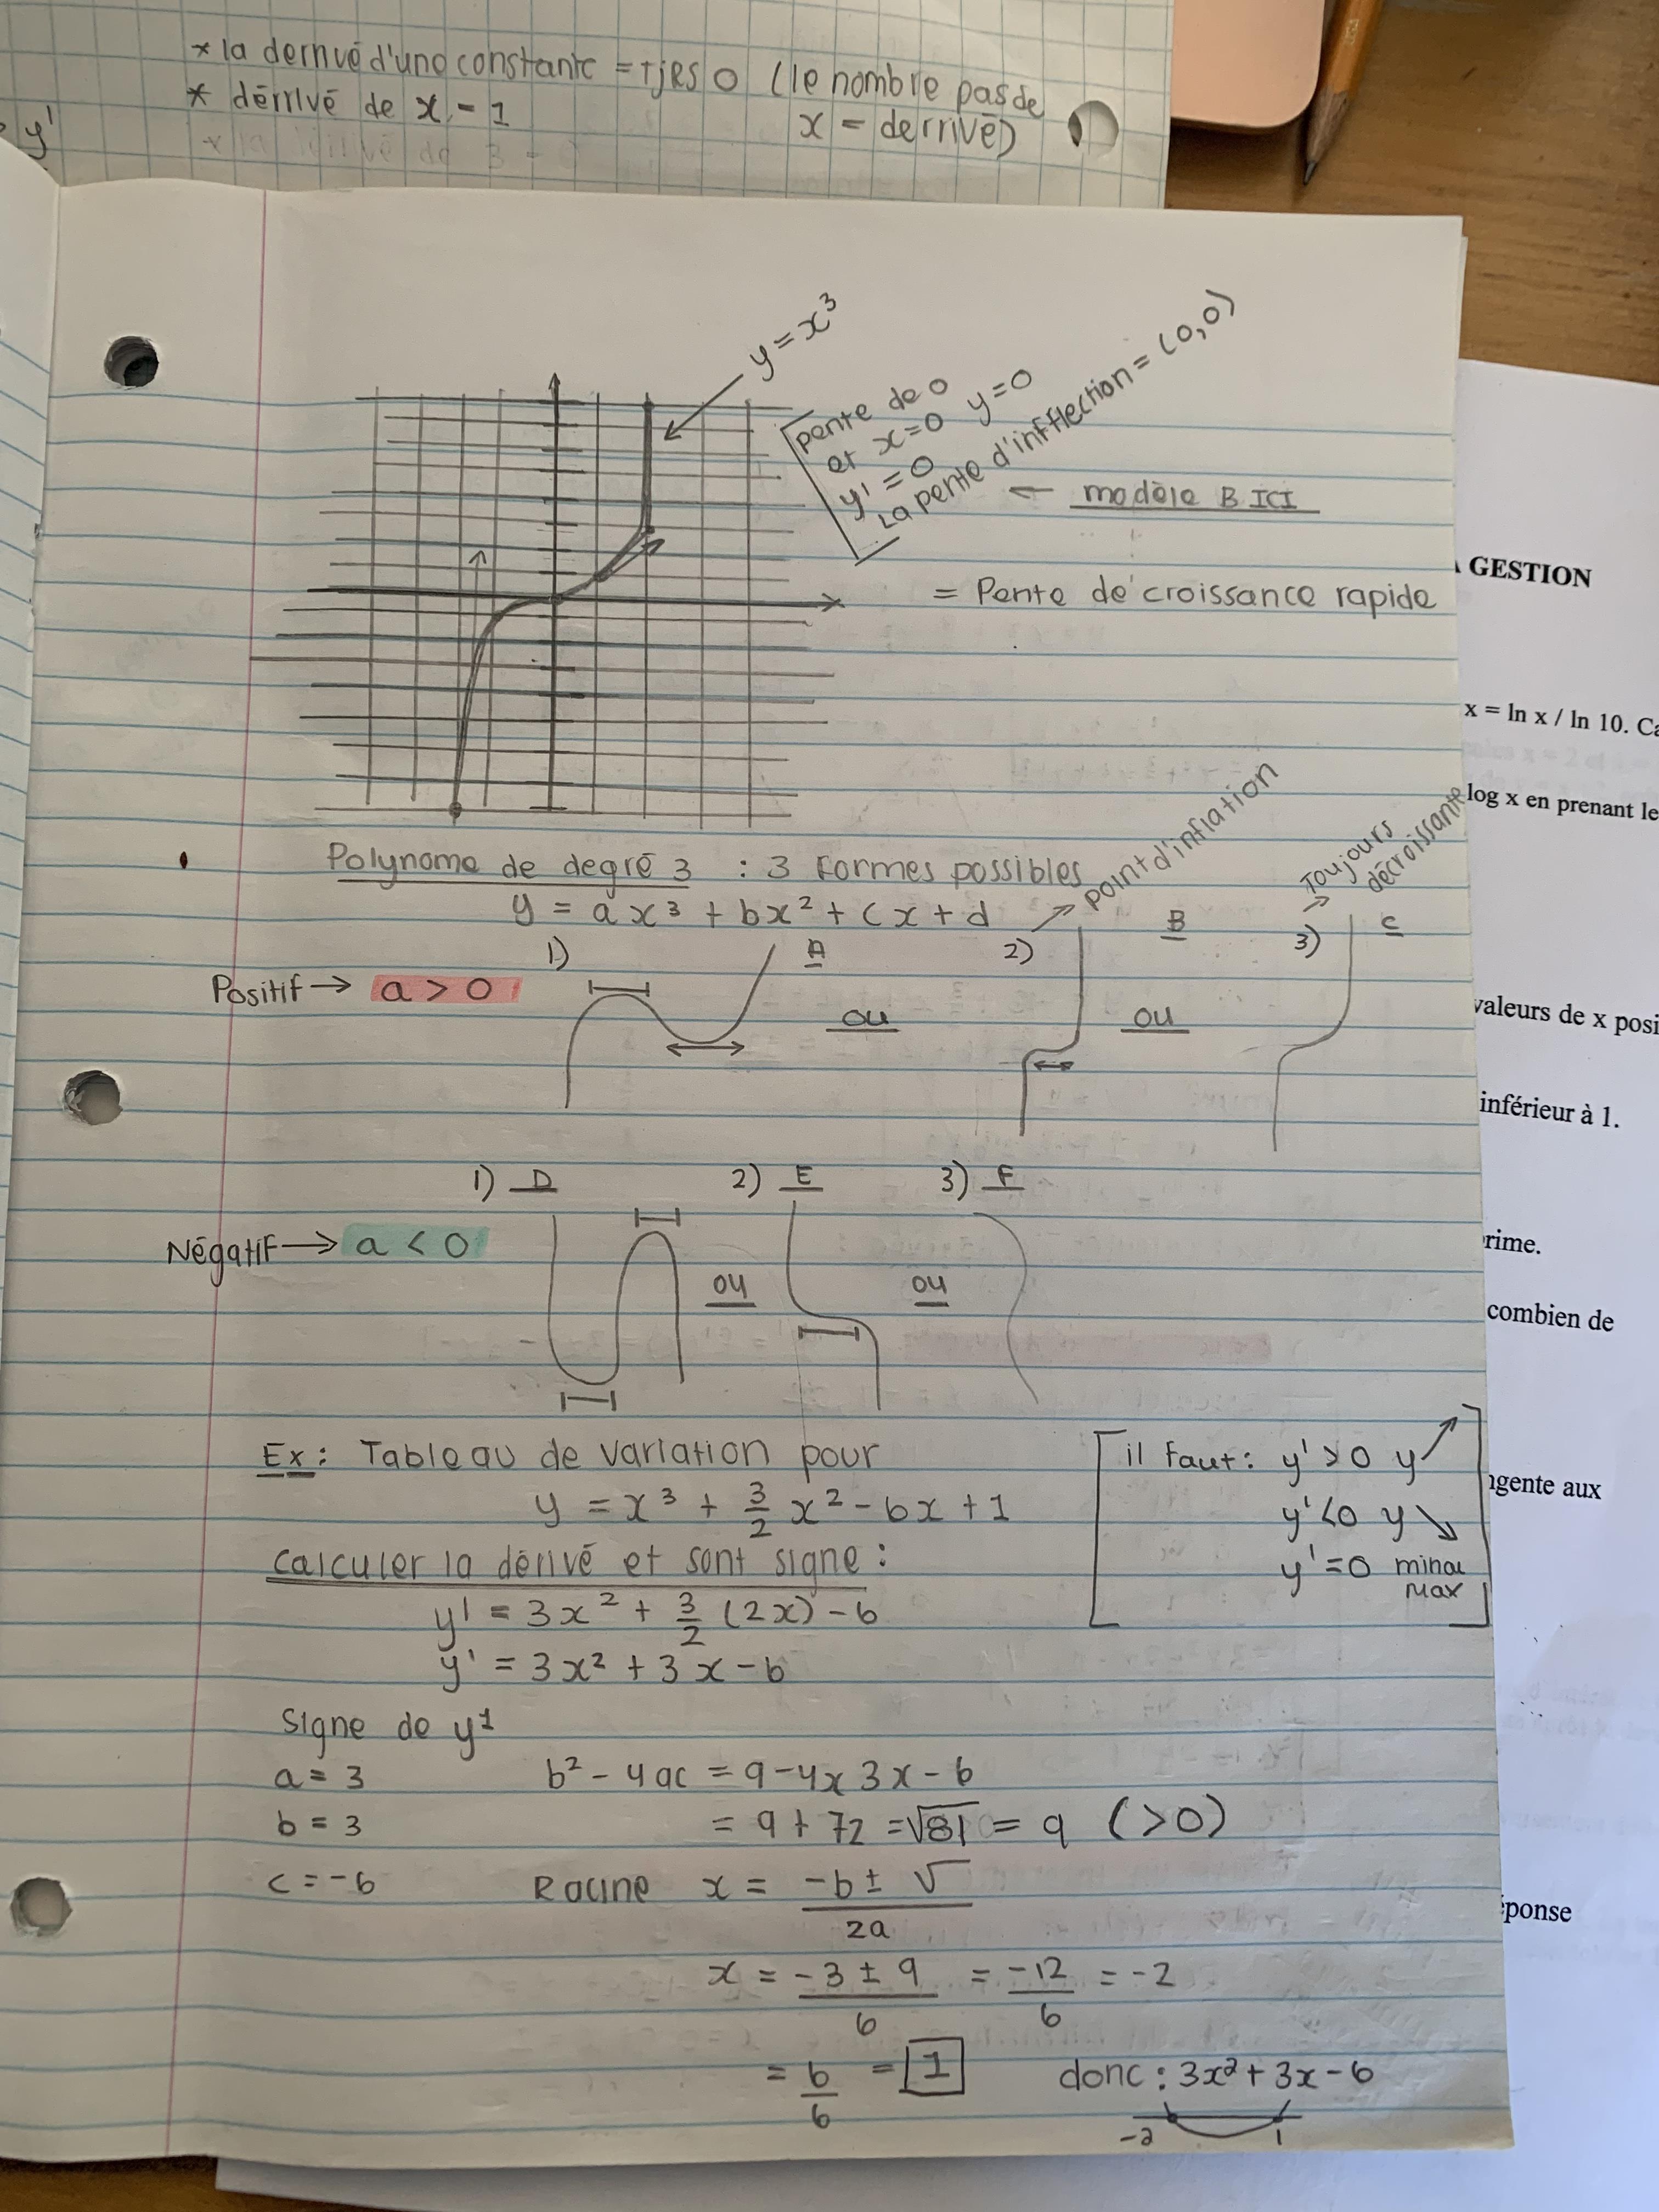 y'
* la derrivé d'une constante = tjrs 0 (le nombre pas de
* dérivé de x = 1
x = derrivé)
y = x³
pente de 0
et x=0 y=0
y' = 0
La pente d'infflection = (0,0)
← modèle B ICI
= Pente de croissance rapide
Polynome de degré 3 : 3 formes possibles
y = ax³ + bx² + cx + d
point d'inflation
Toujours
décroissante
1) A
2) B
3) C
Positif → a > 0
ou
ou
1) D
2) E
3) F
Négatif → a < 0
ou
ou
Ex : Tableau de variation pour
y = x³ + 3/2 x² - 6x + 1
Calculer la dérivé et sont signe :
y' = 3x² + 3/2 (2x) - 6
y' = 3x² + 3x - 6
il faut : y' > 0 y ↗
y' < 0 y ↘
y' = 0 min ou
max
Signe de y'
a = 3
b² - 4ac = 9 - 4 x 3 x - 6
b = 3
= 9 + 72 = √81 = 9 (>0)
c = -6
Racine x = -b ± √ / 2a
x = -3 ± 9 / 6 = -12 / 6 = -2
= 6/6 = 1
donc : 3x² + 3x - 6
-2
1
GESTION
x = ln x / ln 10.
log x en prenant le
valeurs de x posi
inférieur à 1.
rime.
combien de
gente aux
ponse